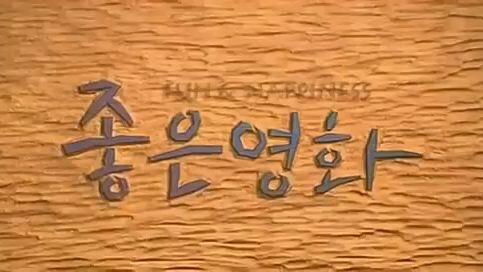 FUN & HAPPINESS
좋은영화